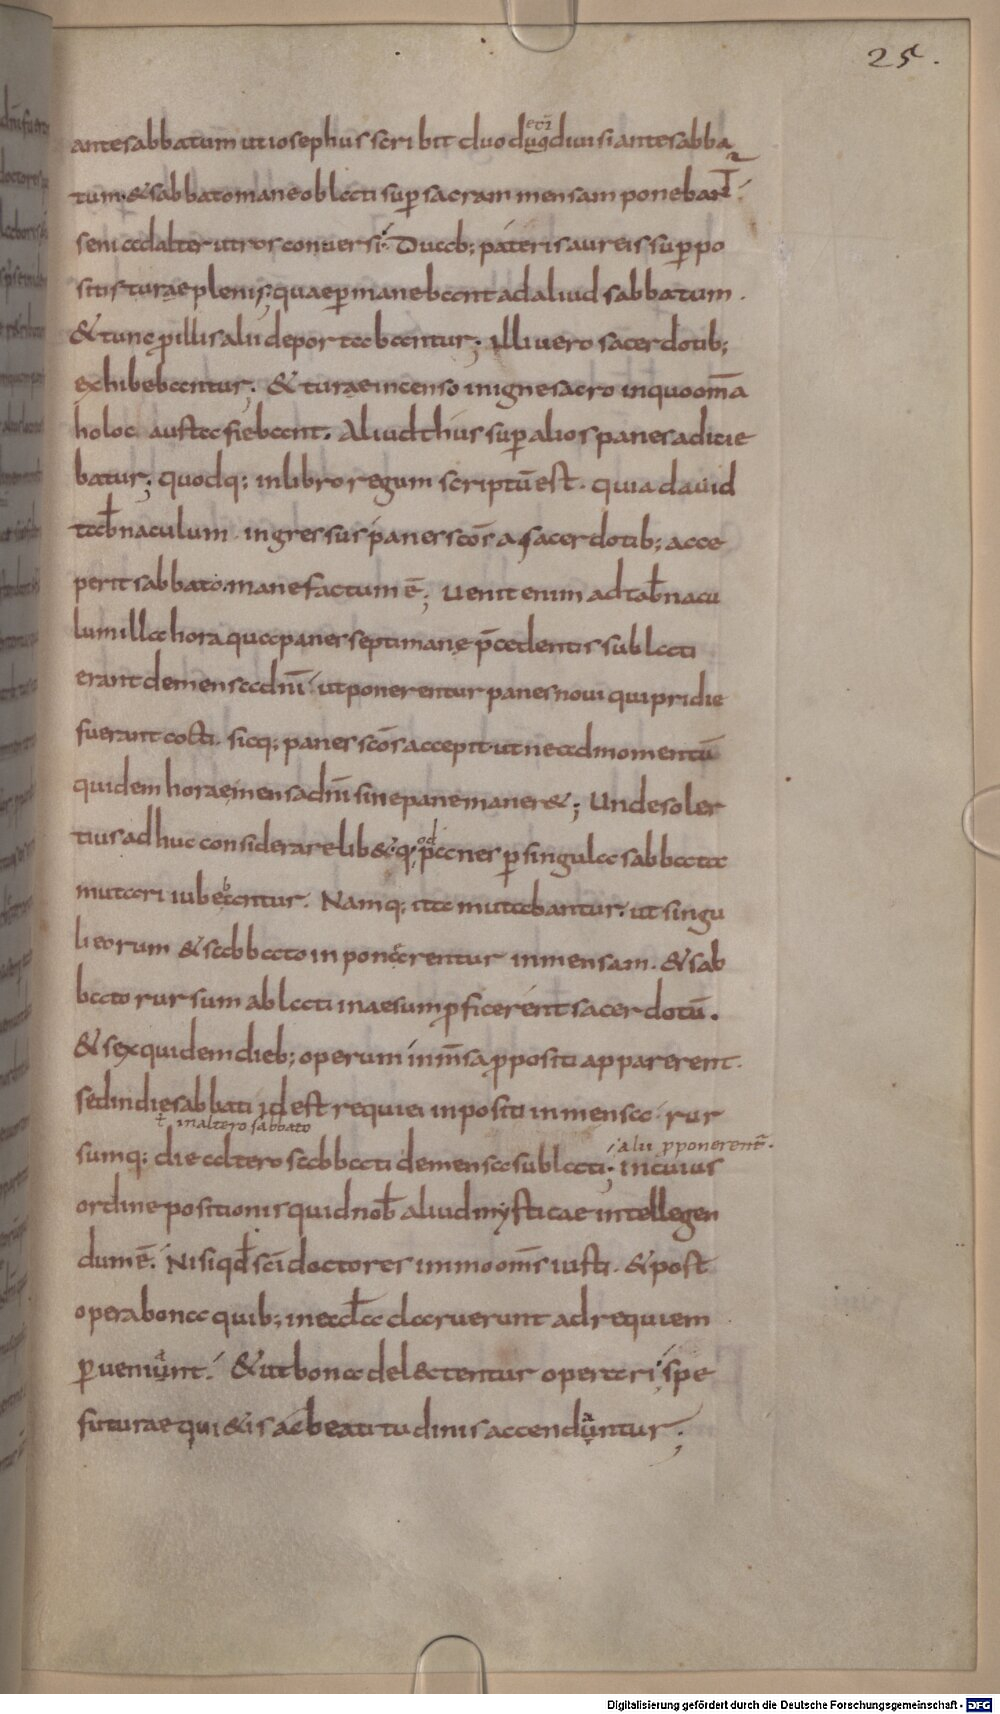 25.
antesabbatum ut iosephus scribit duo duqdiuisi antesabba
tum. & sabbato mane oblati sup̄ sacram mensam ponebantᷣ.
seni ad alterutros conuersi. Duab; pateris aureis suppo
sitis turae plenis; quae p̄manebant ad aliud sabbatum.
& tunc p̄ illis alii deportabantur; Illi uero sacerdotib;
exhibebantur; & turae incenso in igne sacro in quo om̄a
holocausta fiebant. Aliud thus sup̄ alios panes adicie
batur; quodq; in libro regum scriptū est. quia dauid
tab̄naculum ingressus panes scōs a sacerdotib; acce
perit sabbato mane factum ē; Uenit enim ad tab̄nacu
lum illa hora qua panes septimane p̄cedentis sublati
erant de mensa dn̄i ut ponerentur panes noui qui pridie
fuerant cocti. sicq; panes scōs accepit ut ne ad momentū
quidem horae mensa dn̄i sine pane maner&; Unde soler
tius adhuc considerare lib& q; od panes p̄ singula sabbata
mutari iubebantur. Namq; ita mutabantur. ut singu
li eorum & sabbato inponerentur in mensam. & sab
bato rursum ablati in aesum p̄ficerent sacerdotū.
& sex quidem dieb; operum in m̄sa p̄positi apparerent.
sed in die sabbati id est requiei inpositi in mensa. rur
ł in altero sabbato
sumq; die altero sabbati de mensa sublati; in cuius
alii p̄ponerent̄.
ordine positionis quid nob̄ aliud mysticae intellegen
dum ē. Nisi qd̄ sc̄i doctores immo om̄s iusti. & post
opera bona quib; in ecc̄la claruerunt ad requiem
p̄ueniunt. & ut bona delectentur operari spe
futurae qui&is ac beatitudinis accenduntur;
Digitalisierung gefördert durch die Deutsche Forschungsgemeinschaft - DFG